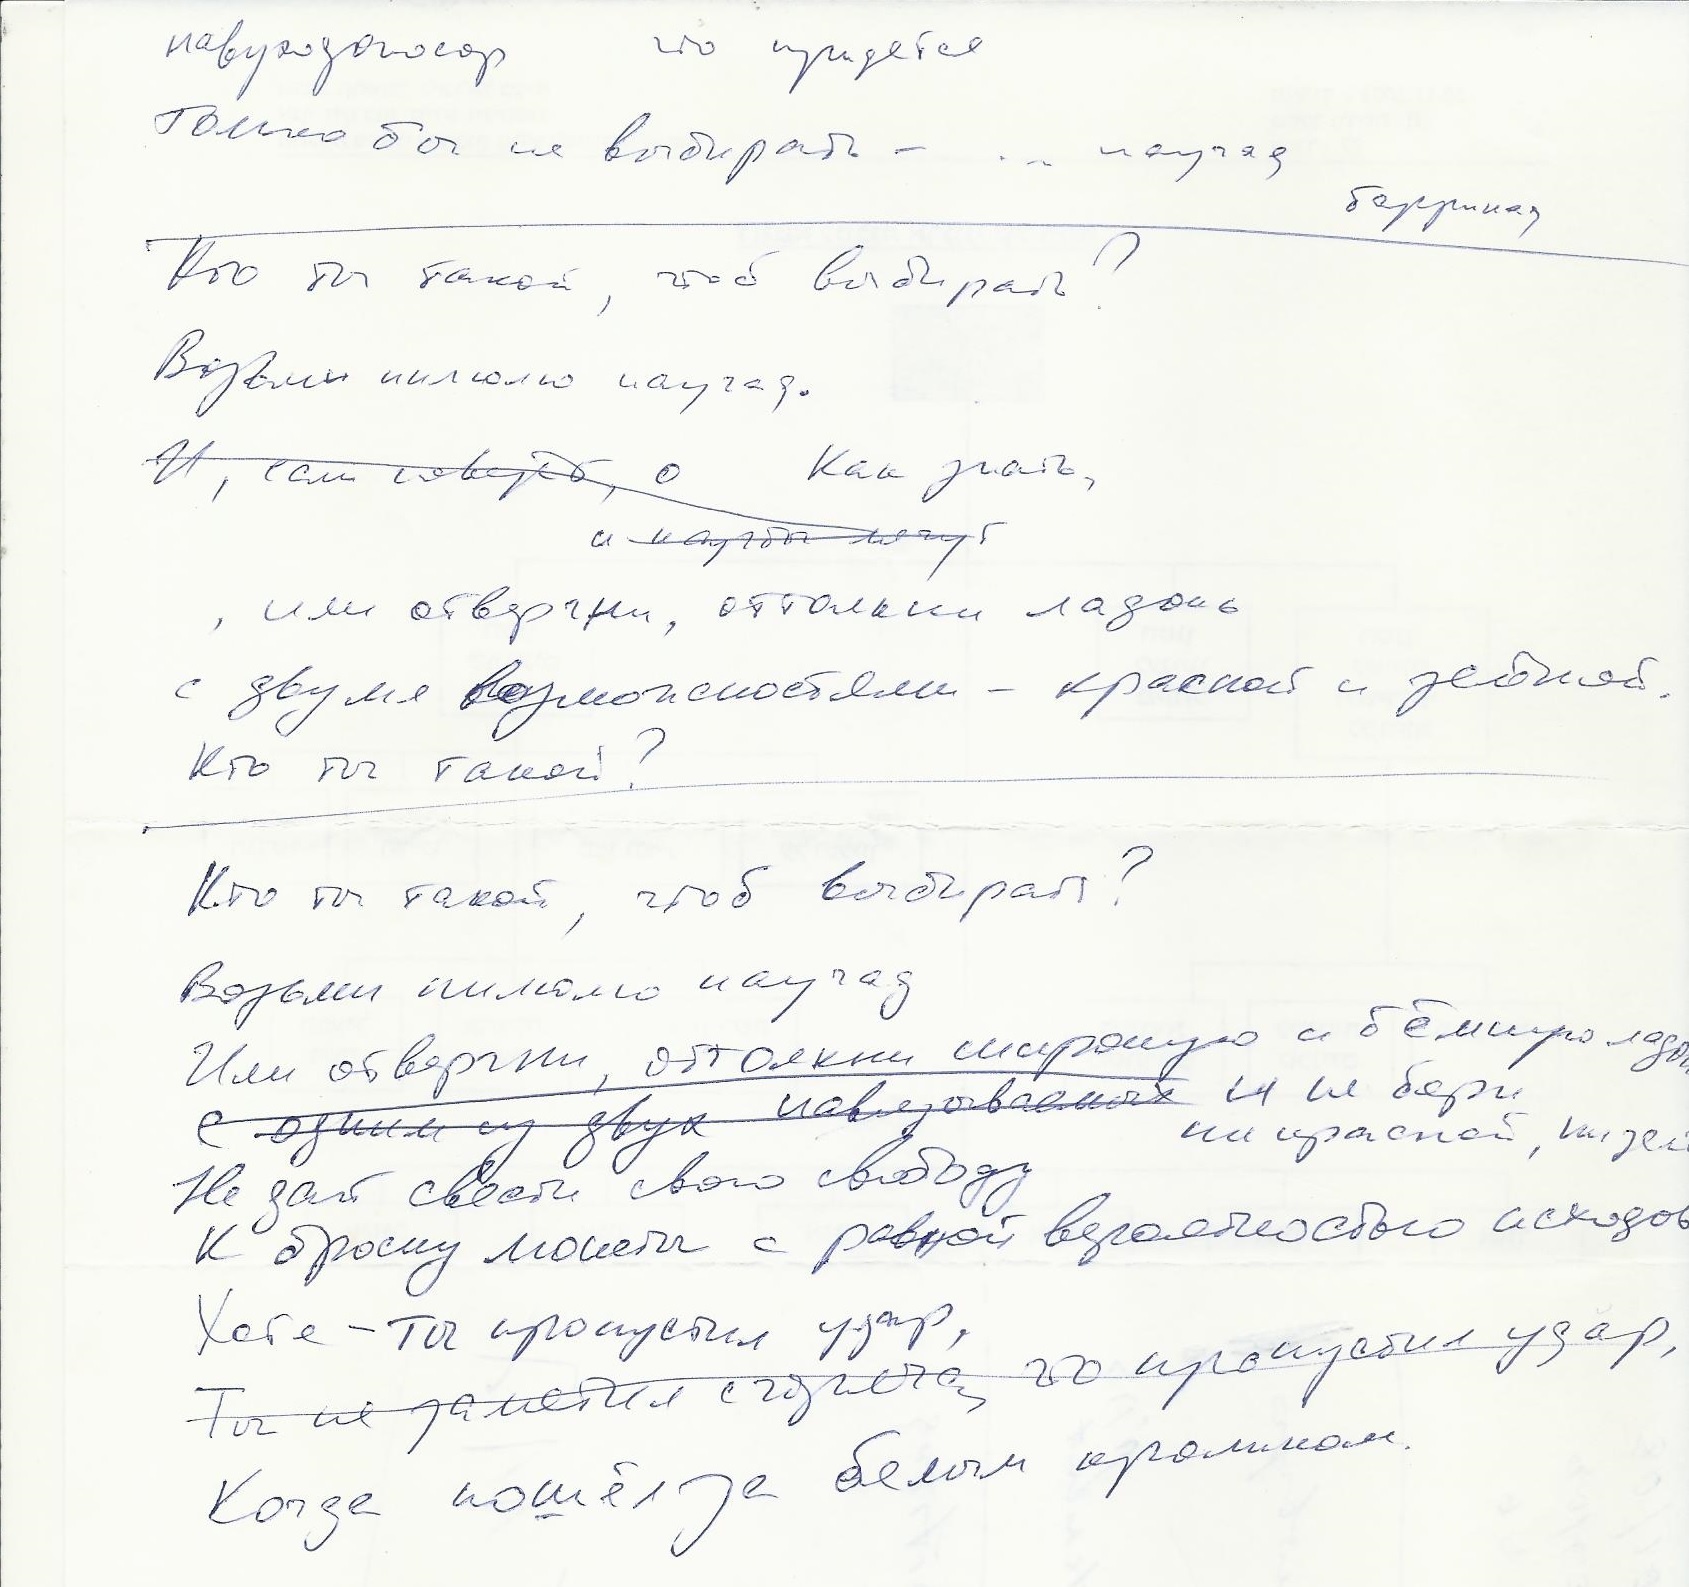 навуходоносор что придётся
Только бы не выбирать – ... наугад
баррикад
Кто ты такой, чтоб выбирать?
Возьми пилюлю наугад.
И, сам Как знать,
и
, или отвергни, оттолкни ладонь
с двумя возможностями – красной и зелёной.
Кто ты такой?
Кто ты такой, чтоб выбирать?
Возьми пилюлю наугад
Или отвергни, оттолкни широкую и
с одним из двух навязываемых и не бери
ни красной, ни
Не дай свести свою свободу
К броску монеты с равной вероятностью исходов
Хотя – ты пропустил удар,
Ты не заметил сгоряча, что пропустил удар,
Когда пошёл за белым кроликом.